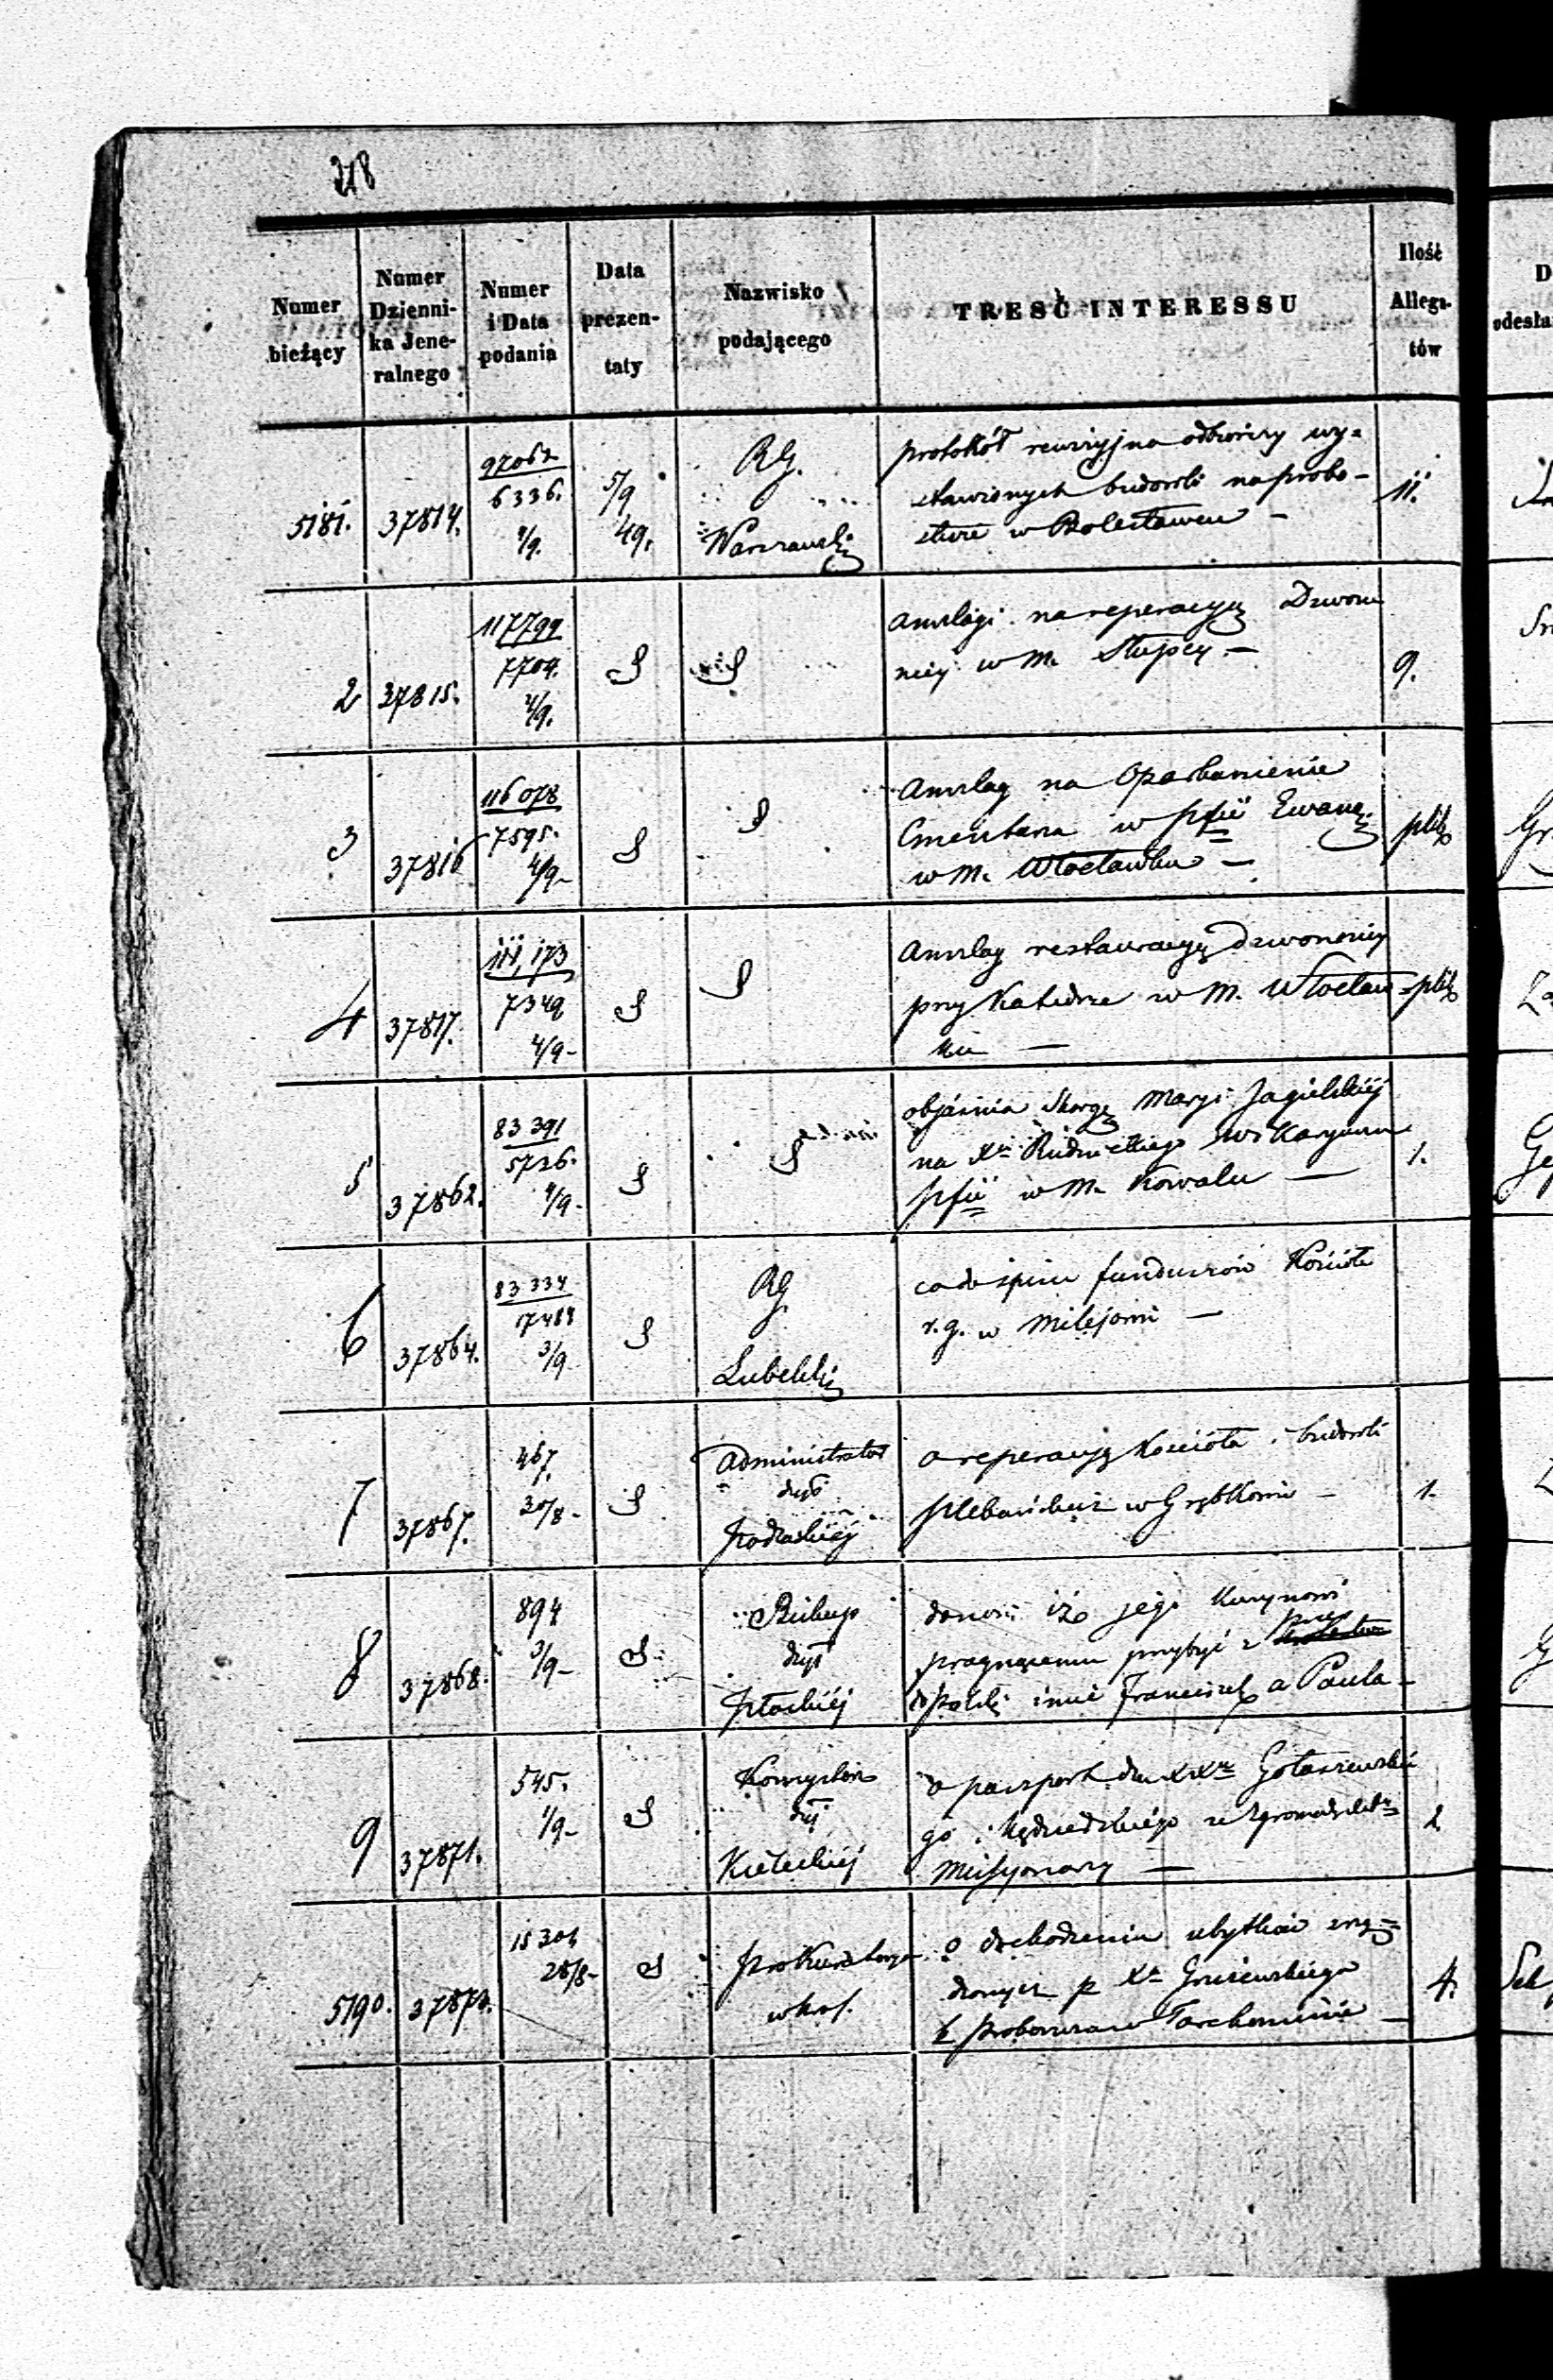 218
Numer bieżący | Numer Dzienni- ka Jene- ralnego | Numer i Data podania | Data prezen- taty | Nazwisko podającego | TRESĆ INTERESSU | Ilość Allega- tów
5181. | 37814. | 97062 / 6336. 4/9. | 5/9 49. | RG. Warszawski | protokół rewizyjno odbiorczy wy=
stawionych budowli na probo-
stwie w Bolesławcu — | 11.
2 | 37815. | 117799 / 7709. 4/9. | S | S | Anszlagi na reperacyą Dzwon
nicy w M. Słupcy — | 9.
3 | 37816 | 116078 / 7595. 4/9- | S | S | Anszlag na Oparkanienie
Cmentarza w pfii Ewang.
w M. Włocławku — | plik
4 | 37817. | 111,173 / 7349 4/9- | S | S | Anszlag restauracyą dzwonnicy
przy Katedrze w M. Włocław=
ku — | plik
5 | 37862. | 83391 / 5726. 4/9- | S | S | objaśnia Skargę Maryi Jagielskiej
na Xa Rudnickiego Wikaryusza
pfii w M. Kowalu — | 1.
6 | 37864. | 83334 / 17484 3/9 | S | RG. Lubelski | co do spisu funduszów Kościoła
r.g. w Milejowie —
7 | 37867. | 467. 30/8- | S | Administrator dyec Podlaskiej | o reperacyą Kościoła i budowli
plebańskich w Grębkowie — | 1.
8 | 37868. | 894 3/9- | S | Biskup dyec Płockiej | donosi iż jego Kuzynowi
pragnącemu przybyć z Prus
do Polski imie Franciszek a Paula —
9 | 37871. | 545. 1/9- | S | Konsystorz dyec Kieleckiej | o paszport dla XXży Gołaszewskie
go i Kędzierskiego ze Zgromadzenia
Missyonarzy — | 2
5190. | 37872. | 15301 28/8- | S | Prokuratorya w Król. | o dochodzeniu ubytków zrzą=
dzonych p Xa Gniżewskiego
b Proboszcza w Tarchominie — | 4.